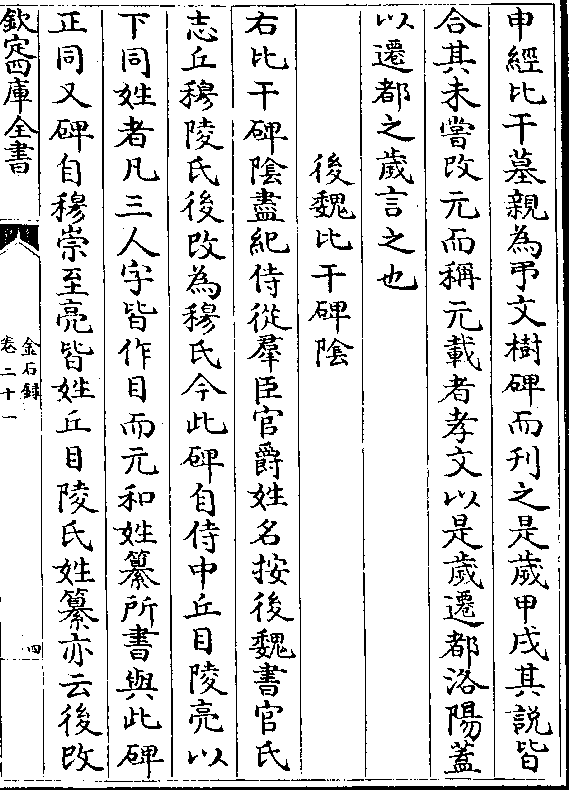 申經比干墓親為弔文樹碑而刋之是歲甲戌其說皆
合其未嘗改元而稱元載者孝文以是歲遷都洛陽蓋
以遷都之歲言之也
後魏比干碑隂
右比干碑隂盡紀侍從羣臣官爵姓名按後魏書官氏
志丘穆陵氏後改為穆氏今此碑自侍中丘目陵亮以
下同姓者凡三人字皆作目而元和姓纂所書與此碑
正同又碑自穆崇至亮皆姓丘目陵氏姓纂亦云後改
欽定四庫全書
金石録
卷二十一
四